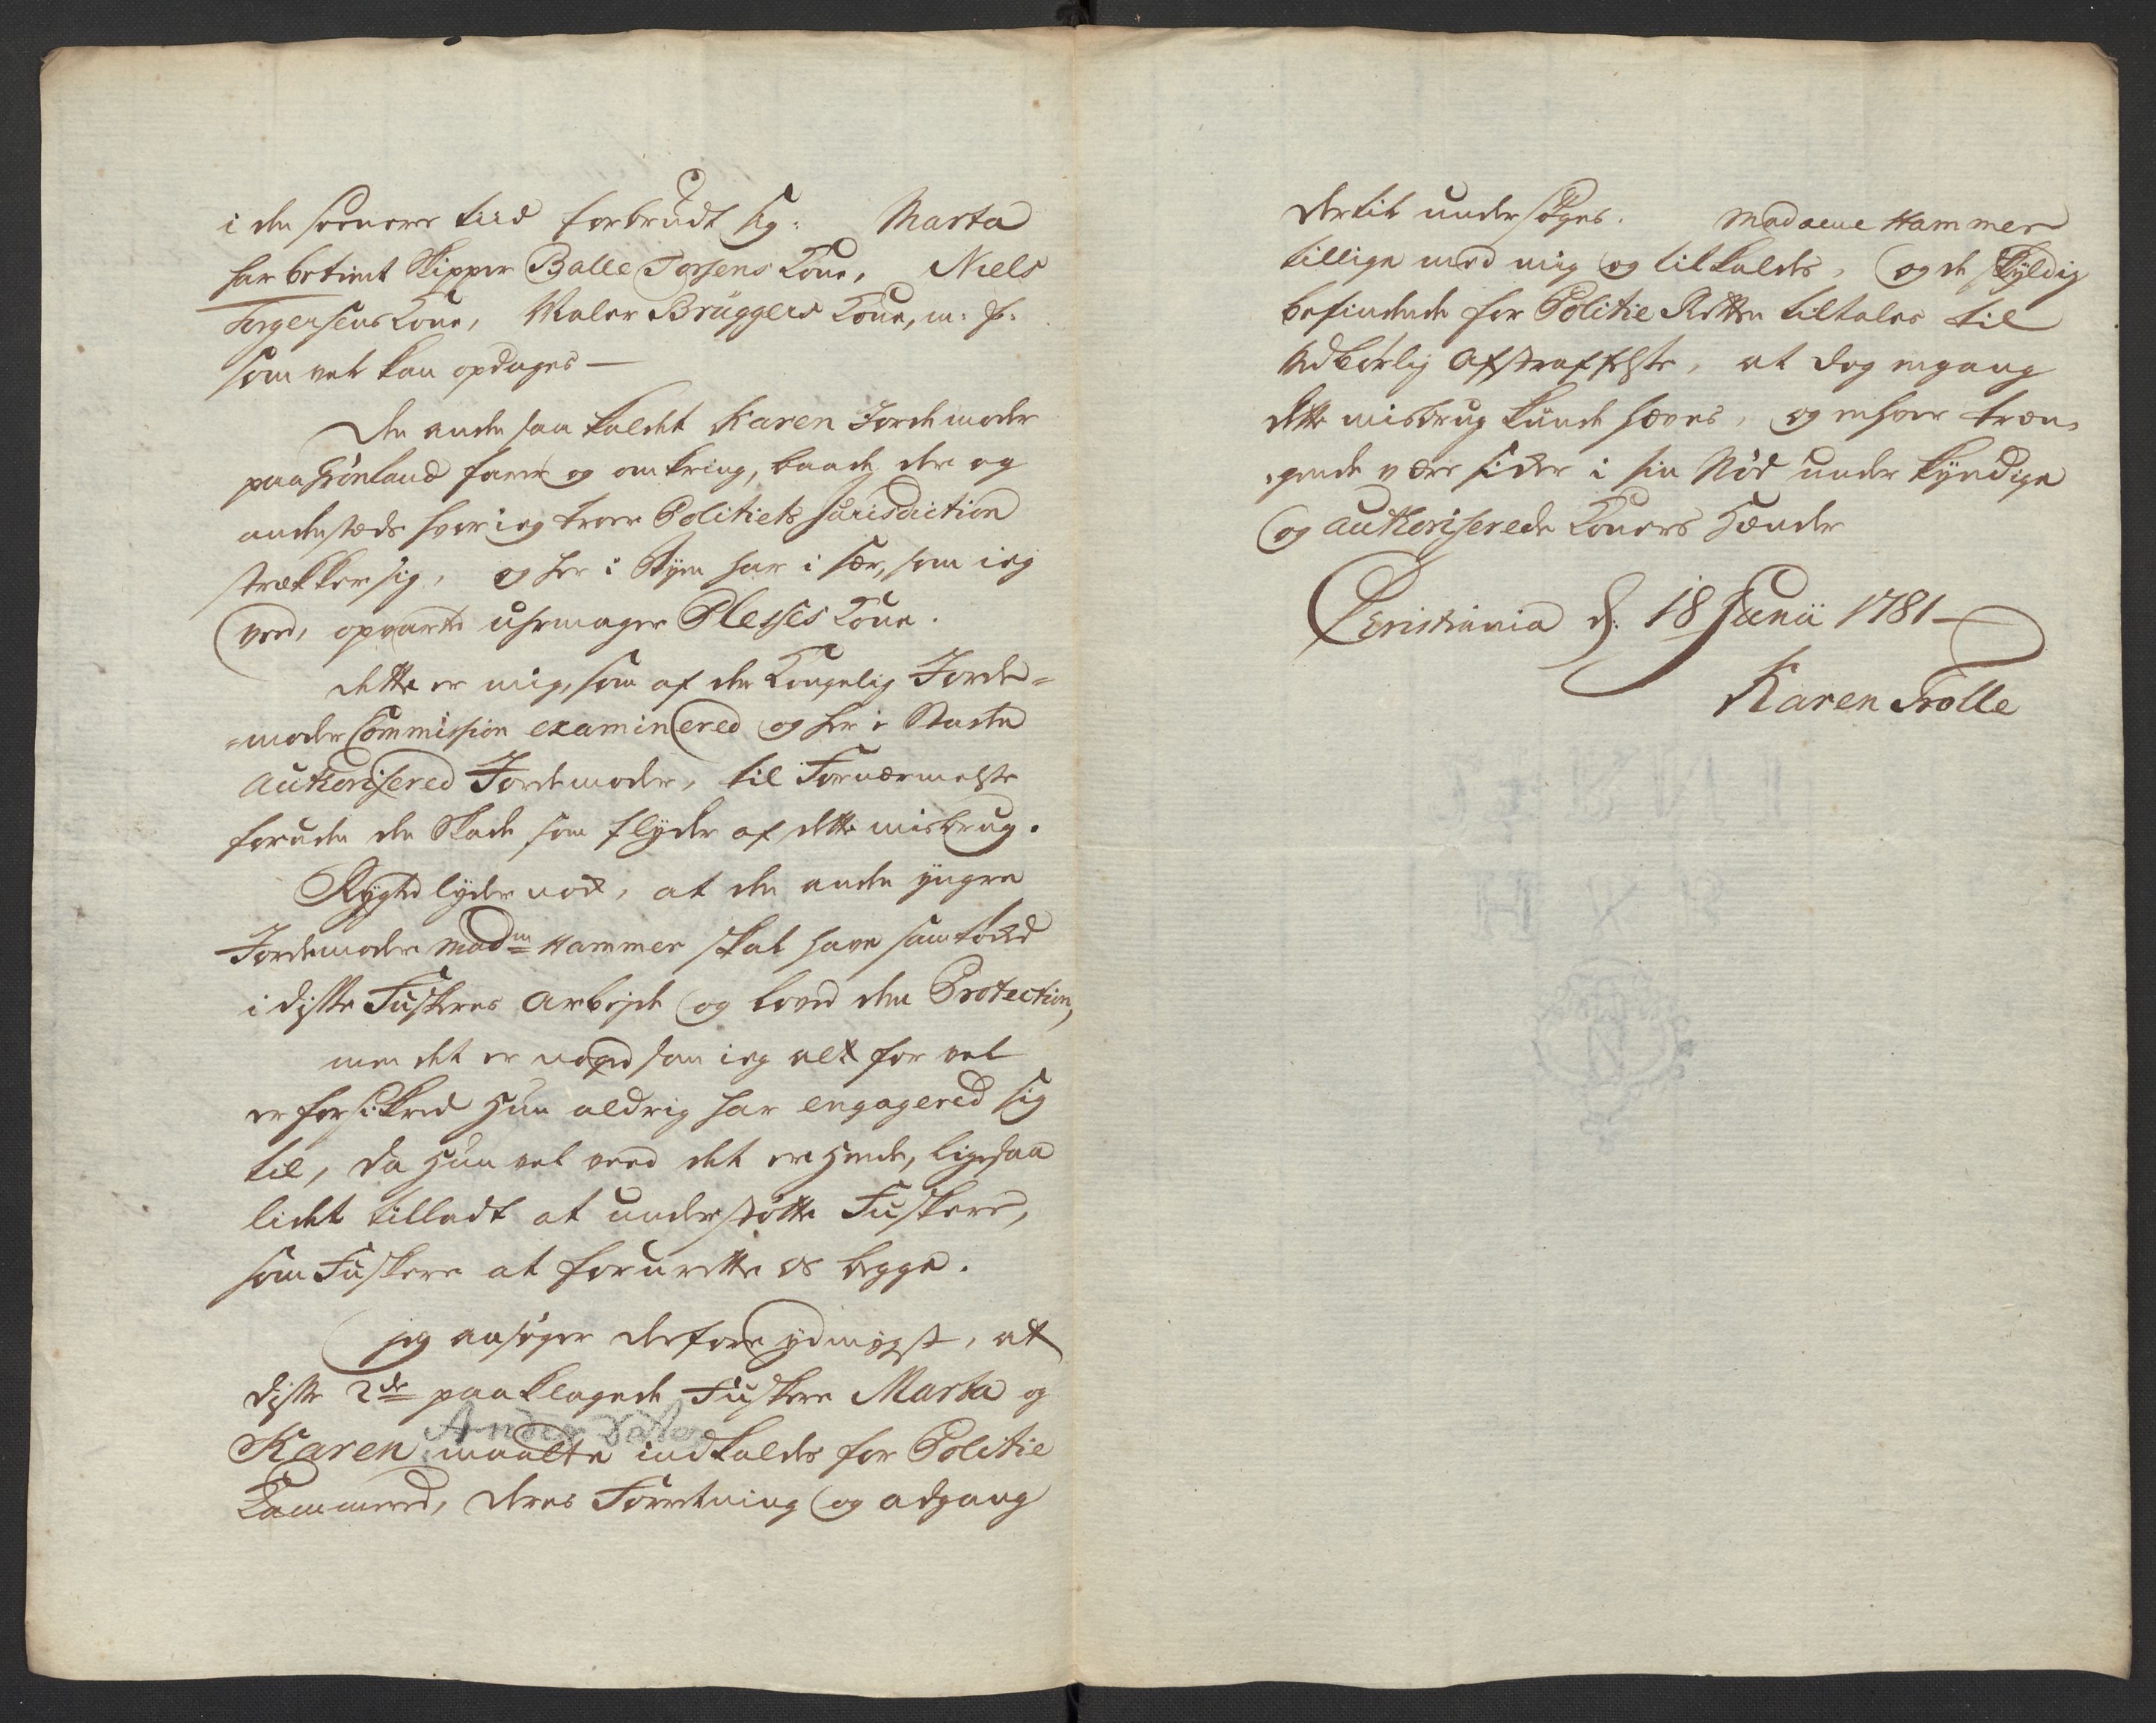 i den seenere tiid forbrudt sig: Marta
har betient Skipper Balle Torsens Kone, Niels
Torgersens Kone, Maler Brüggers Kone, m: fl:
som vel kan opdages —
Den anden saa kaldet Karen Jordemoder
paa Grönland farer og omkring, baade der og
andestæds hvor ieg troer Politiets Jurisdiction
strækker sig, og her i Byen har i sær, som ieg
veed, opvarted Uhrmager Plesses Kone.
dette er mig, som af den Kongelig Jorde-
-moder Commission examinered og her i Staden
Authorisered Jordemoder, til Fornærmelse
foruden den Skade som flyder af dette misbrug.
Rygted lyder vel, at den anden yngre
Jordemoder Mad<sup>m</sup> Hammer skal have samtöcked
i disse Fuskeres Arbejde og loved dem Protection,
men det er noged som ieg alt for vel
er forsikred Hun aldrig har engagered sig
til, da Hun vel veed det er Hende, ligesaa
lidet tilladt at understötte Fuskere,
som Fuskere at forurette os begge.
Jeg ansöger derfore ydmygst, at
disse 2<sup>de</sup> paaklagede Fuskere Marta og
Karen Andersdatter maatte indkaldes for Politie
Kammered, deres Forretning og adgang
dertil undersöges. Madame Hammer
tillige med mig og tilkaldes, og de skyldig
befindende for Politie Retten tiltales til
vedbörlig Afstraffelse, at dog engang
dette misbrug kunde hæves, og enhver træn-
-gende være sikker i sin Nöd under kyndige
og authoriserede Koners Hænder
Christiania d: 18 Junii 1781 —
Karen Trolle